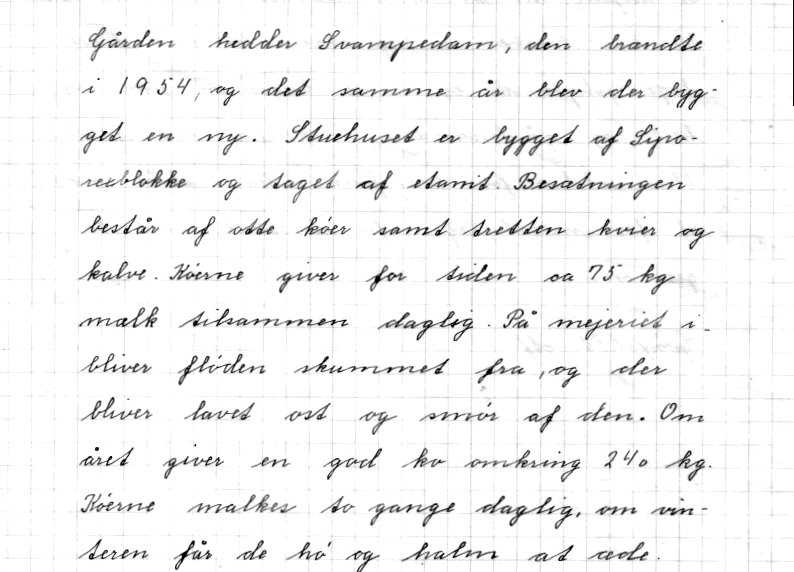 Gården hedder Svampedam, den brændte
i 1954, og det samme år blev der byg-
get en ny. Stuehuset er bygget af Sipo-
rexblokke og taget af etanit. Besætningen
består af otte kóer samt tretten kvier og
kalve. Kóerne giver for tiden ca 75 kg
mælk tilsammen daglig. På mejeriet i-
bliver flóden skummet fra, og der
bliver lavet ost og smór af den. Om
året giver en god ko omkring 240 kg.
Kóerne malkes to gange daglig, om vin-
teren får de hó og halm at æde.